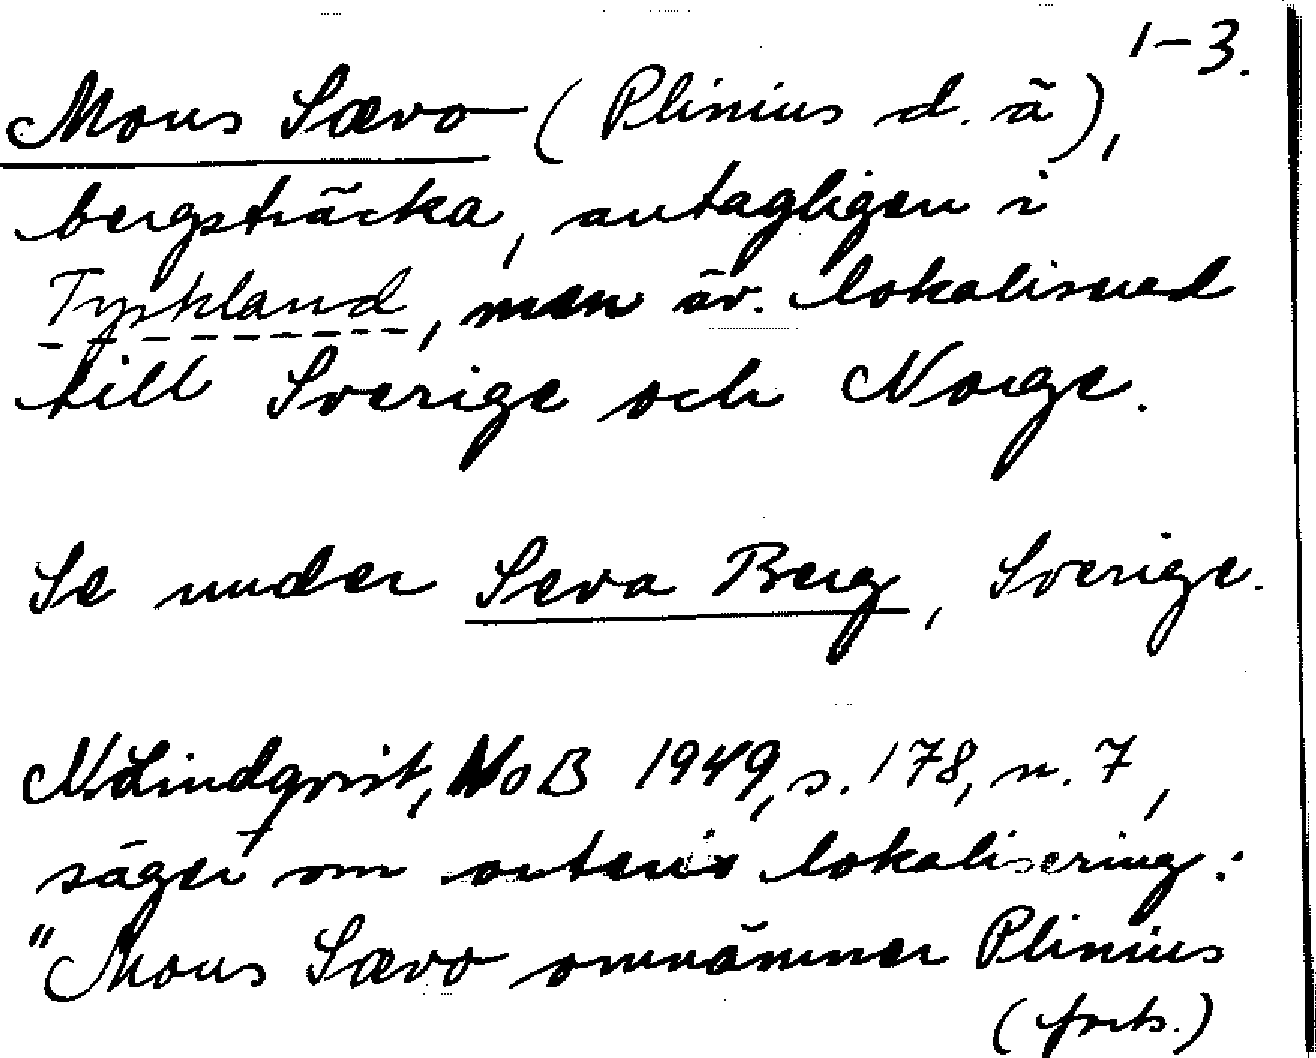 1-3.
Mons Sævo (Plinius d. ä),
bergsträcka, antagligen i
Tyskland, men äv. lokaliserad
till Sverige och Norge.
Se under Seva Berg, Sverige.
N. Lindqvist, NoB 1949, s. 178, n. 7,
säger om ortens lokalisering:
"Mons Sævo omnämner Plinius
(forts.)